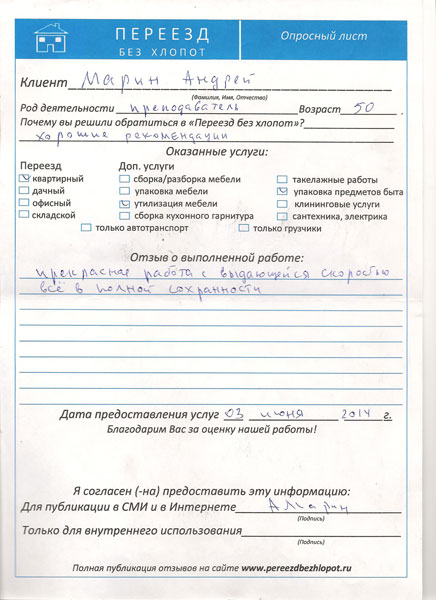 ПЕРЕЕЗД
БЕЗ ХЛОПОТ
Опросный лист
Клиент Марин Андрей
(Фамилия, Имя, Отчество)
Род деятельности преподаватель Возраст 50 .
Почему вы решили обратиться в «Переезд без хлопот»?
хорошие рекомендации
Оказанные услуги:
Переезд Доп. услуги
квартирный сборка/разборка мебели такелажные работы
дачный упаковка мебели упаковка предметов быта
офисный утилизация мебели клининговые услуги
складской сборка кухонного гарнитура сантехника, электрика
только автотранспорт только грузчики
Отзыв о выполненной работе:
прекрасная работа с выдающейся скоростью
всё в полной сохранности
Дата предоставления услуг 03 июня 2014 г.
Благодарим Вас за оценку нашей работы!
Я согласен (-на) предоставить эту информацию:
Для публикации в СМИ и в Интернете АМарин
(Подпись)
Только для внутреннего использования
(Подпись)
Полная публикация отзывов на сайте www.pereezdbezhlopot.ru